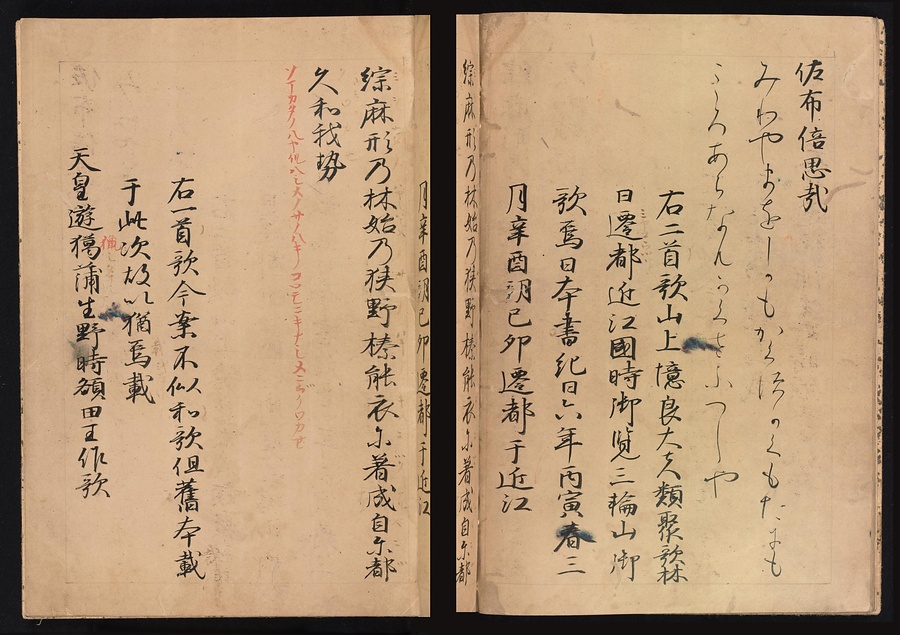 佐布倍思哉
みわやまをしかもかくすかくもたにも
こゝろあらなんかくさふへしや
右二首歌山上憶良大夫類聚歌林
曰遷都近江國時御覧三輪山御
歌焉日本書紀曰六年丙寅春三
月辛酉朔己卯遷都于近江
綜麻形乃林始乃狭野榛能衣尓著成目尓都
月辛酉朔己卯遷都于近江
綜麻形乃林始乃狭野榛能衣尓著成目尓都
久和我勢
右一首歌今案不似和歌但舊本載
于此次故以猶焉載
天皇遊獦蒲生野時額田王作歌